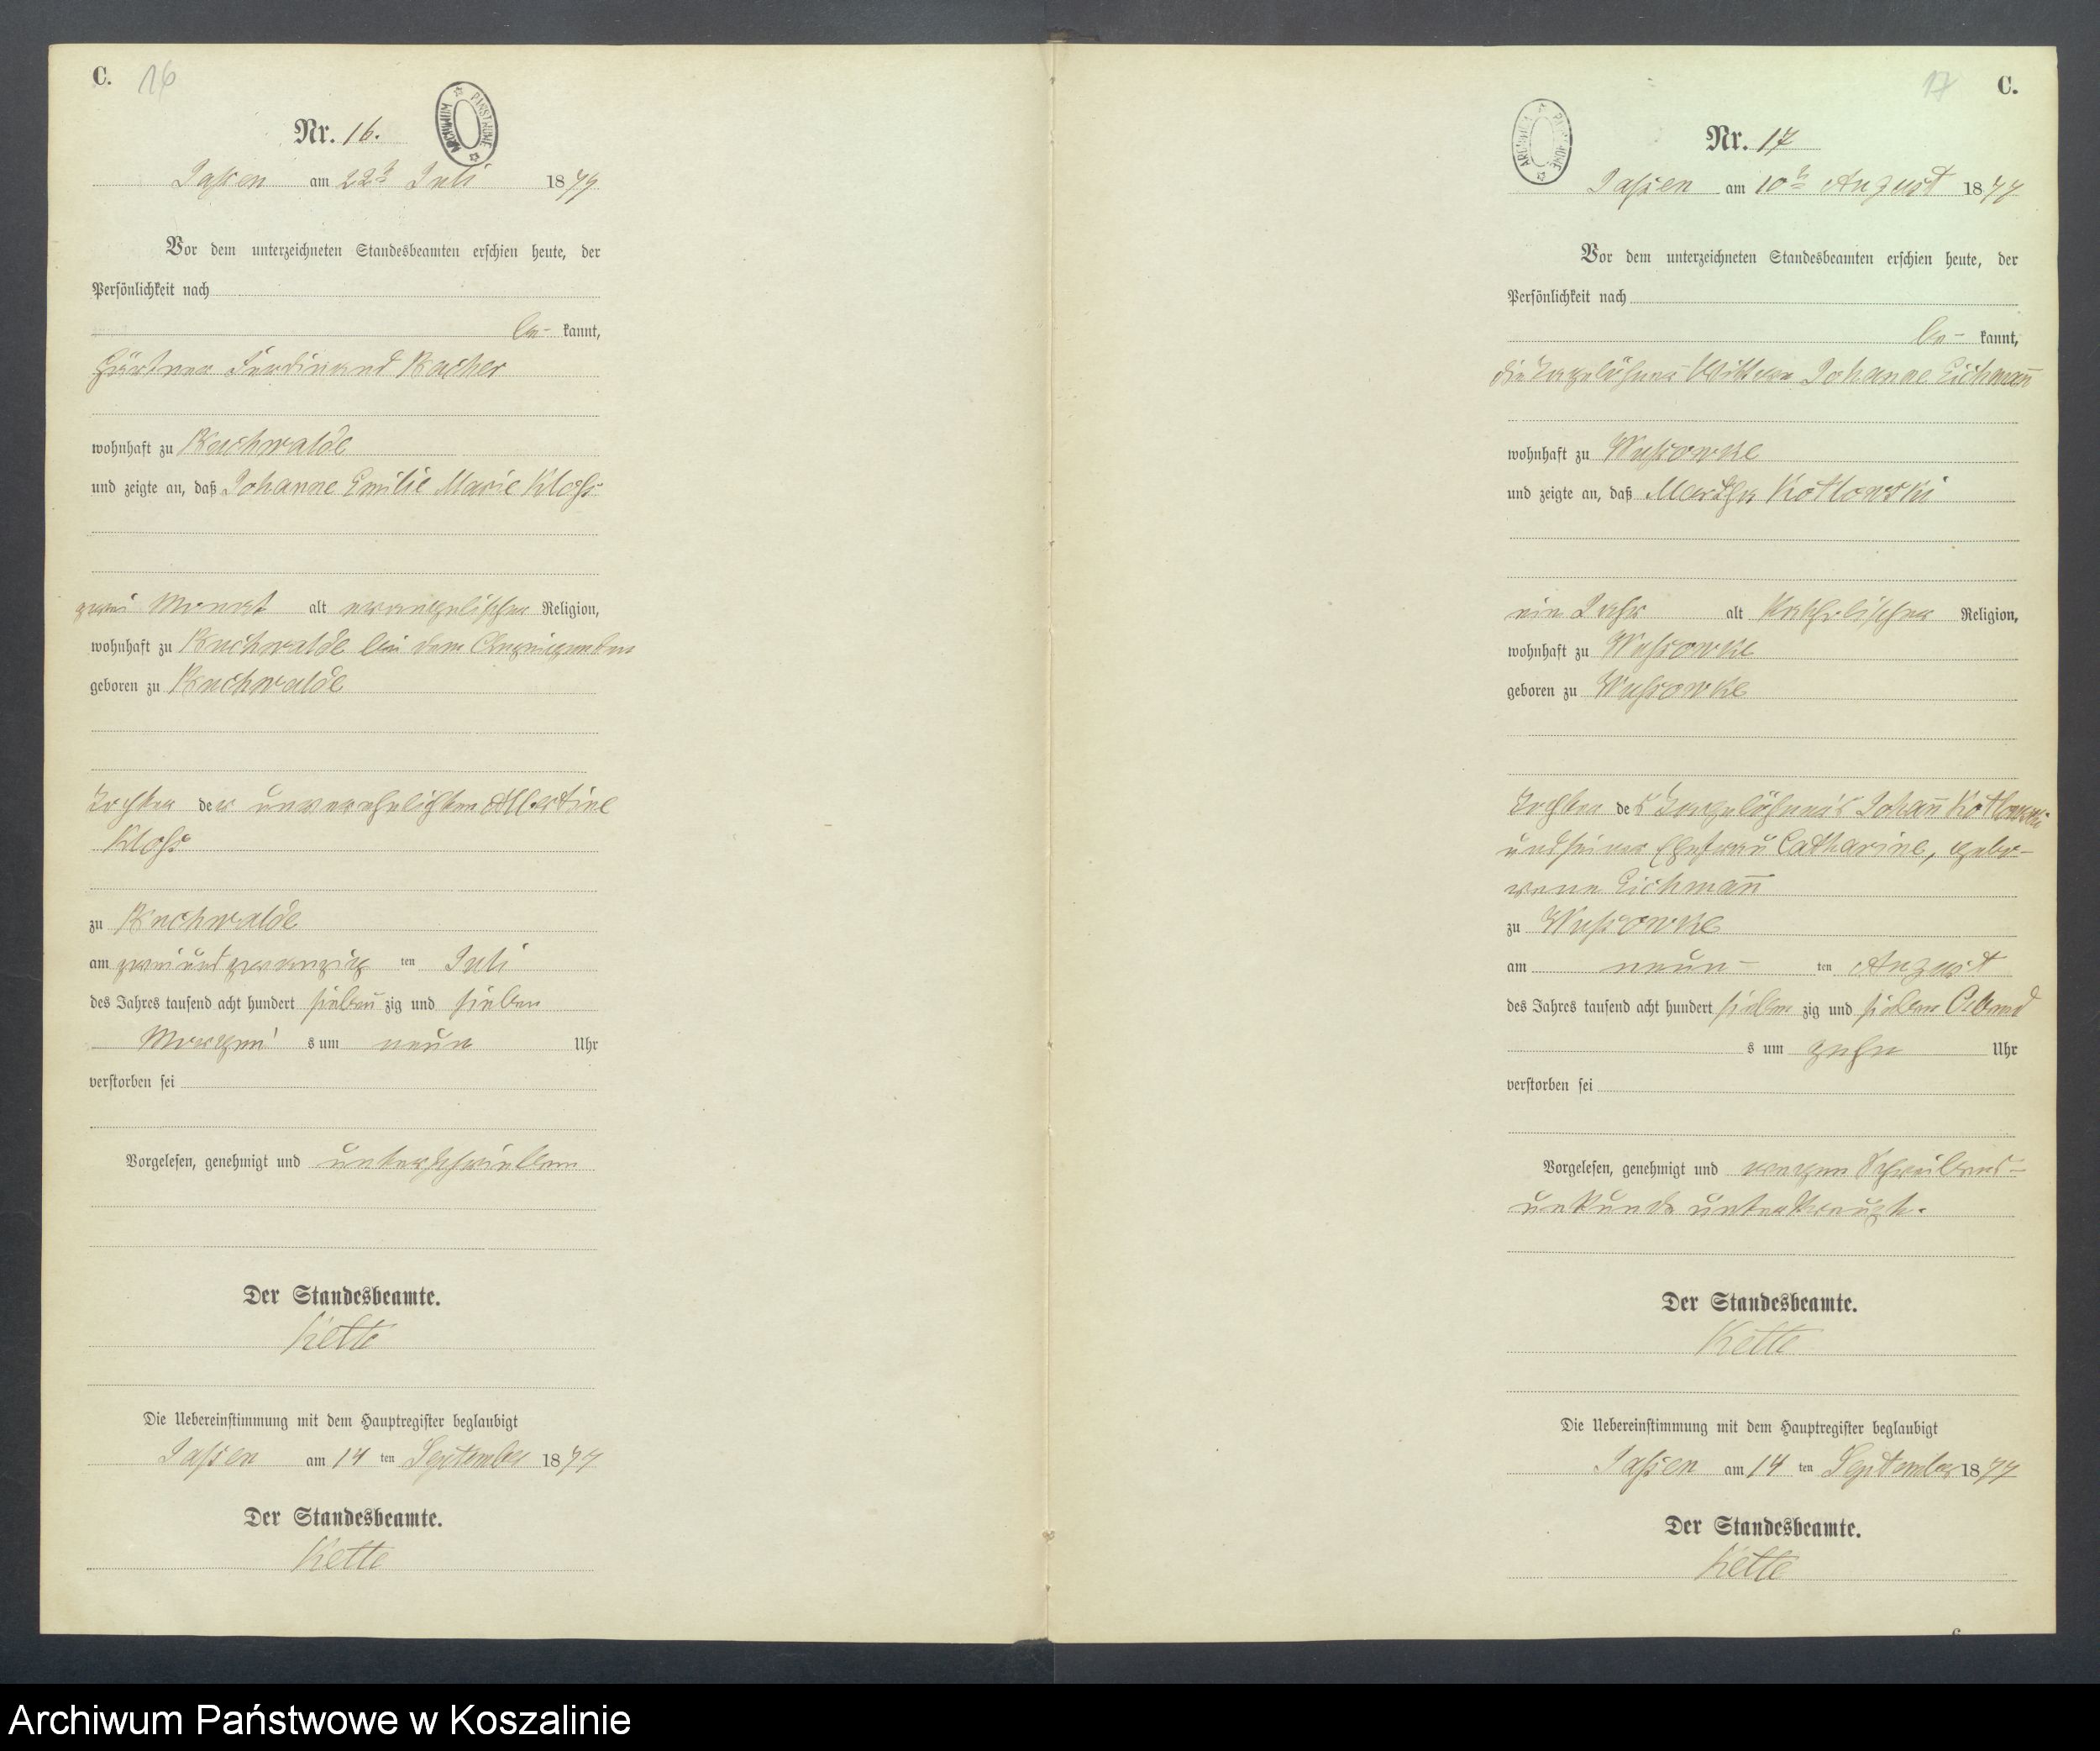 C. 16
Nr. 16.
ARCHIWUM PAŃSTWOWE
Jassen am 22t Juli 1877
Vor dem unterzeichneten Standesbeamten erschien heute, der
Persönlichkeit nach
be- kannt,
Gärtner Ferdinand Bucher
wohnhaft zu Buchwalde
und zeigte an, daß Johanne Emilie Marie Kloss
zwei Monat alt evangelischer Religion,
wohnhaft zu Buchwalde bei dem Anzeigenden
geboren zu Buchwalde
Tochter der unverehelichten Albertine
Kloss
zu Buchwalde
am zweiundzwanzig ten Juli
des Jahres tausend acht hundert sieben zig und sieben
Morgen s um neun Uhr
verstorben sei
Vorgelesen, genehmigt und unterschrieben
Der Standesbeamte.
Kette
Die Uebereinstimmung mit dem Hauptregister beglaubigt
Jassen am 14 ten September 1877
Der Standesbeamte.
Kette
17 C.
Nr. 17
ARCHIWUM PAŃSTWOWE
Jassen am 10t August 1877
Vor dem unterzeichneten Standesbeamten erschien heute, der
Persönlichkeit nach
be- kannt,
die Tagelöhner Wittwe Johanne Eichman̅
wohnhaft zu Wussowke
und zeigte an, daß Martha Kotlowski
ein Jahr alt katholischer Religion,
wohnhaft zu Wussowke
geboren zu Wussowke
Tochter des Tagelöhners Johan̅ Kotlowski
und seiner Ehefrau Catharine, gebo-
rene Eichman̅
zu Wussowke
am neun- ten August
des Jahres tausend acht hundert sieben zig und sieben Abend
s um zehn Uhr
verstorben sei
Vorgelesen, genehmigt und wegen Schreibens-
unkunde unterkreuzt.
Der Standesbeamte.
Kette
Die Uebereinstimmung mit dem Hauptregister beglaubigt
Jassen am 14 ten September 1877
Der Standesbeamte.
Kette
Archiwum Państwowe w Koszalinie